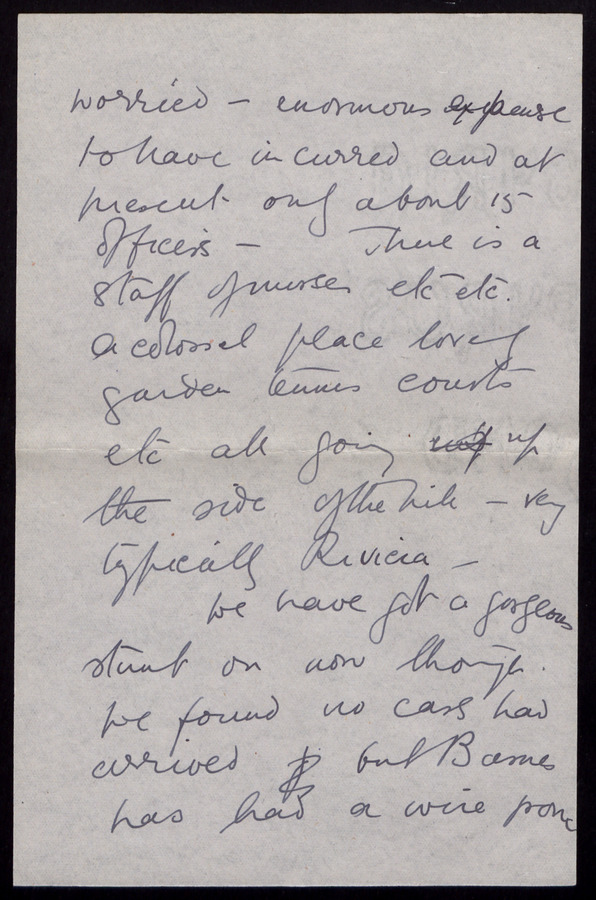 worried – enormous expense
to have incurred and at
present only about 15
officers – There is a
staff of nurses etc etc.
a colossal place lovely
garden tennis courts
etc all going up
the side of the hill – very
typically Riviera –
We have got a gorgeous
stunt on now though.
We found no cars had
arrived but Barnes
has had a wire from